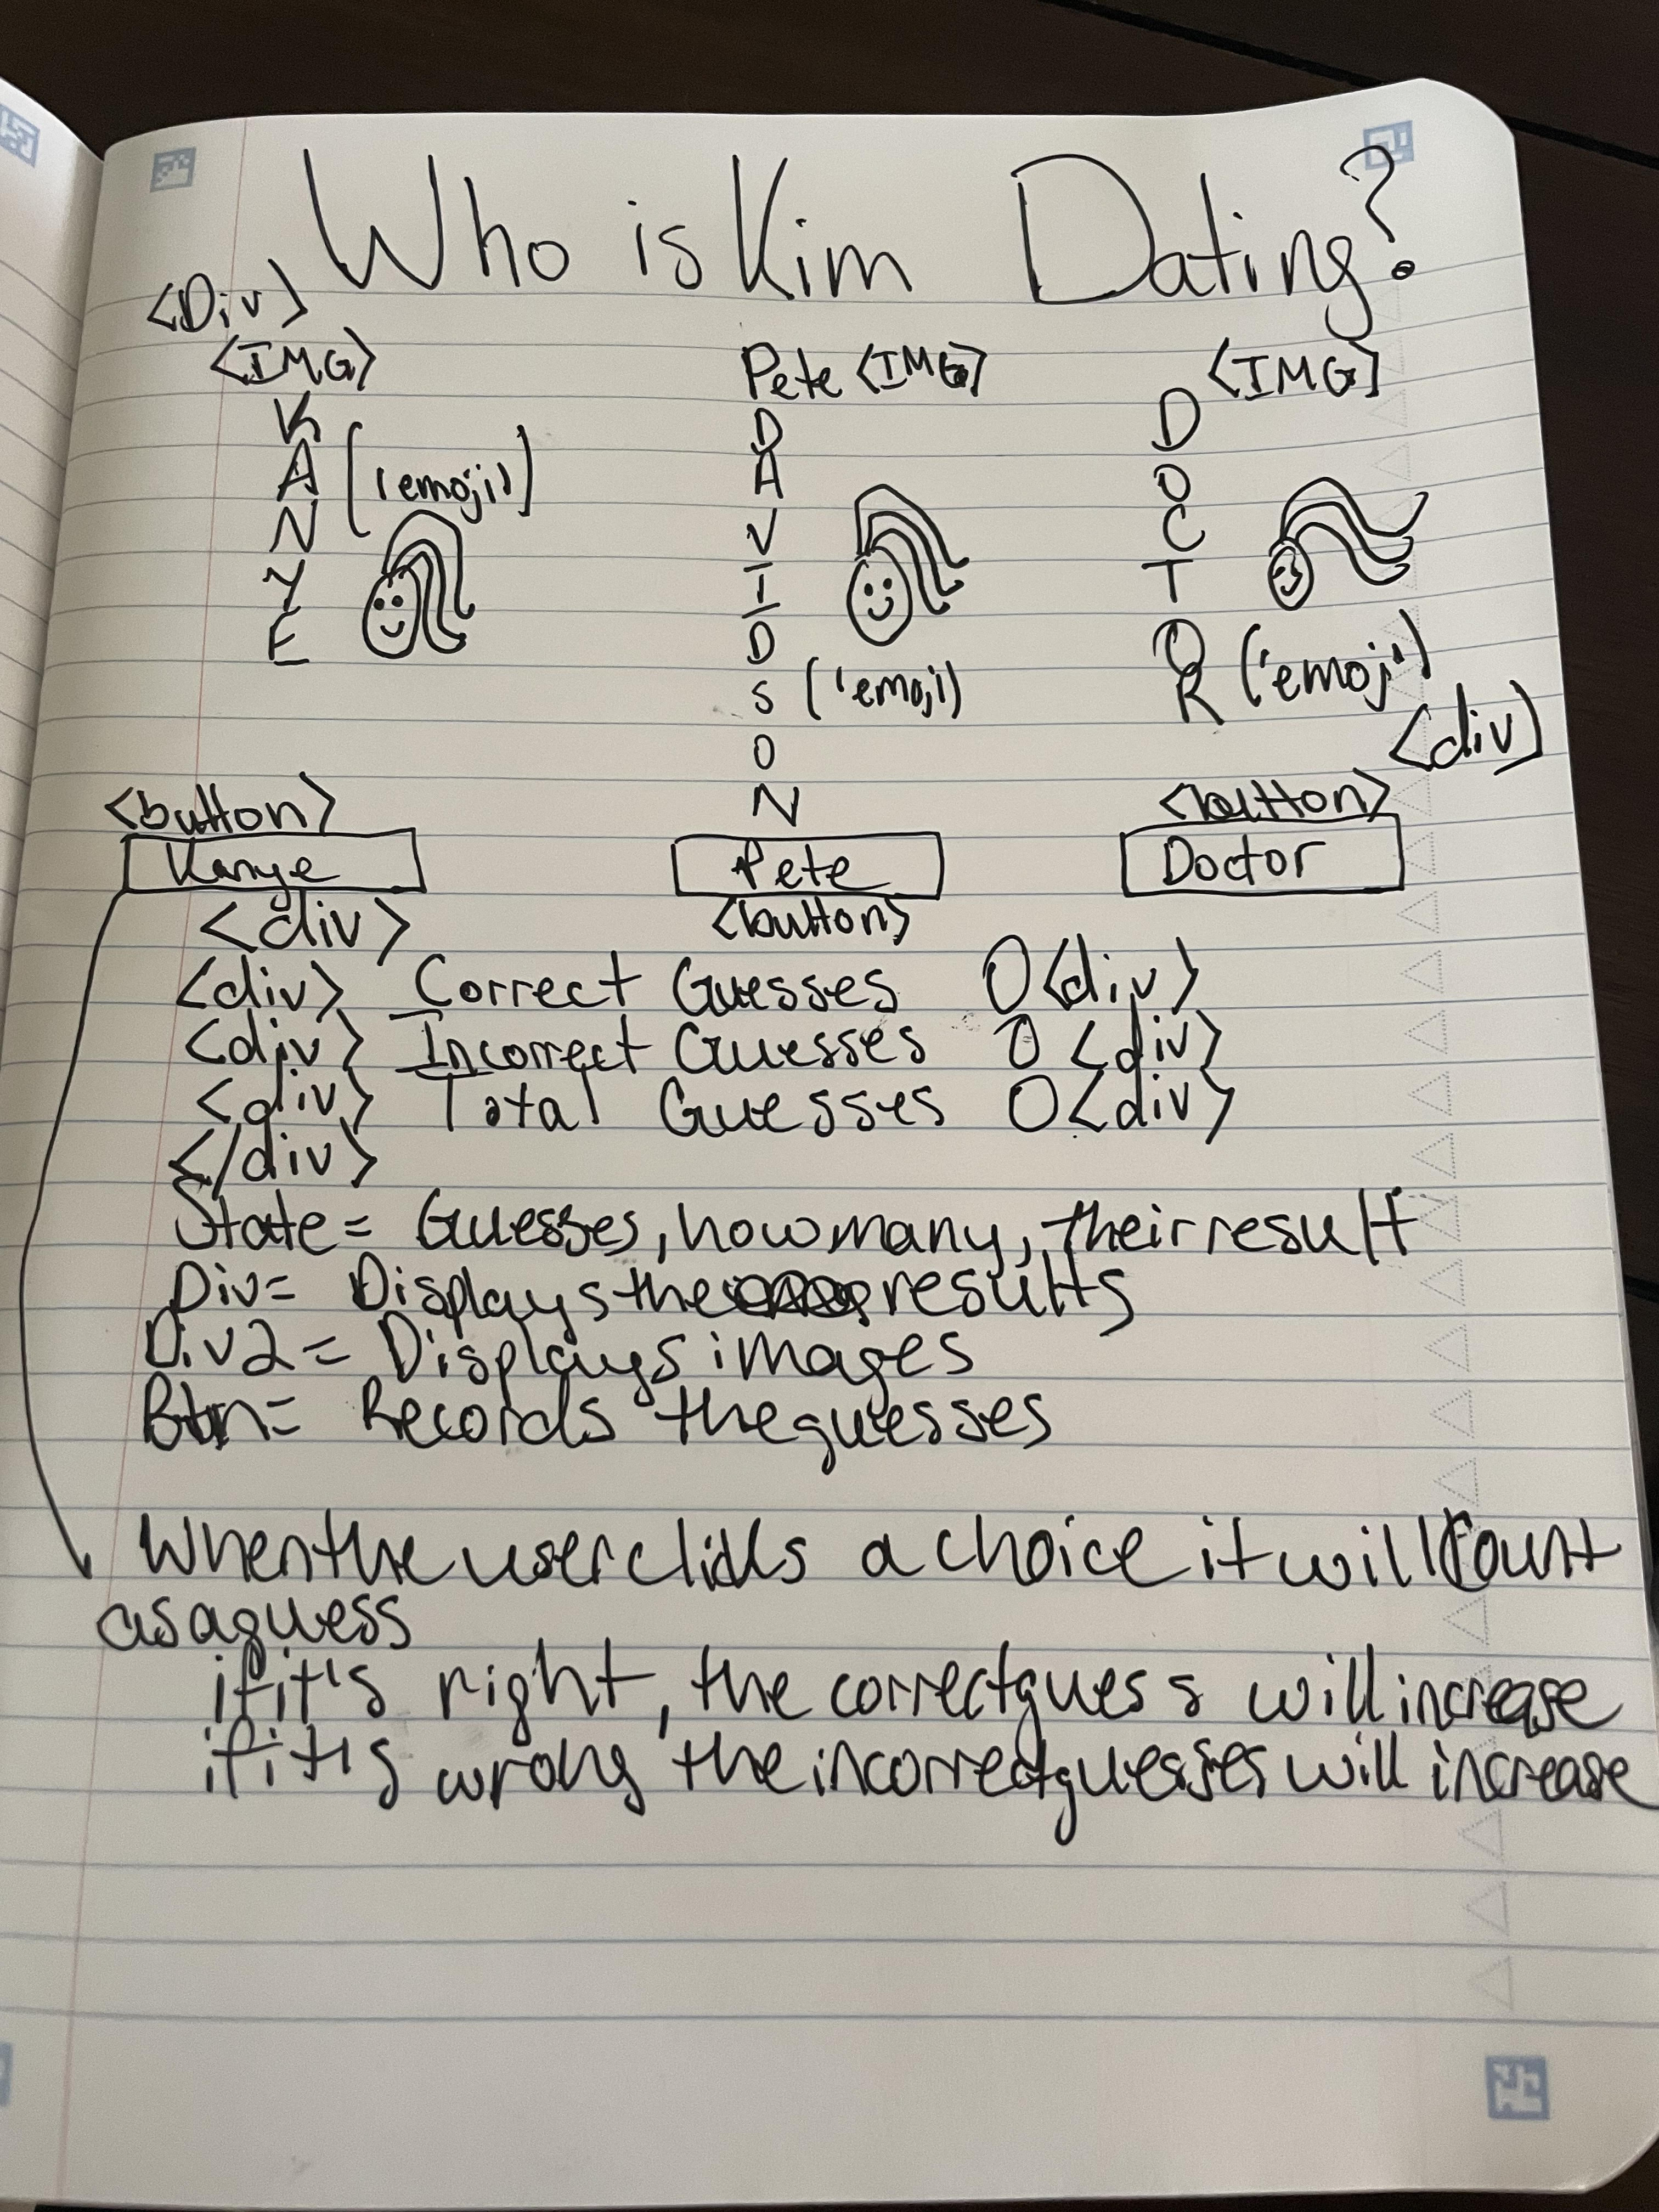 Who is Kim Dating?
<Div>
<IMG>
KANYE
('emoji')
Pete <IMG>
DAVIDSON
('emoji')
<IMG>
DOCTOR
('emoji')
<div>
<button>
Kanye
Pete
<button>
<button>
Doctor
<div>
<div> Correct Guesses 0 <div>
<div> Incorrect Guesses 0 <div>
<div> Total Guesses 0 <div>
</div>
State = Guesses, how many, their result
Div = Displays the results
Div2 = Displays images
Btn = Records the guesses
When the user clicks a choice it will count
as a guess
if it's right, the correct guess will increase
if it's wrong the incorrect guesses will increase